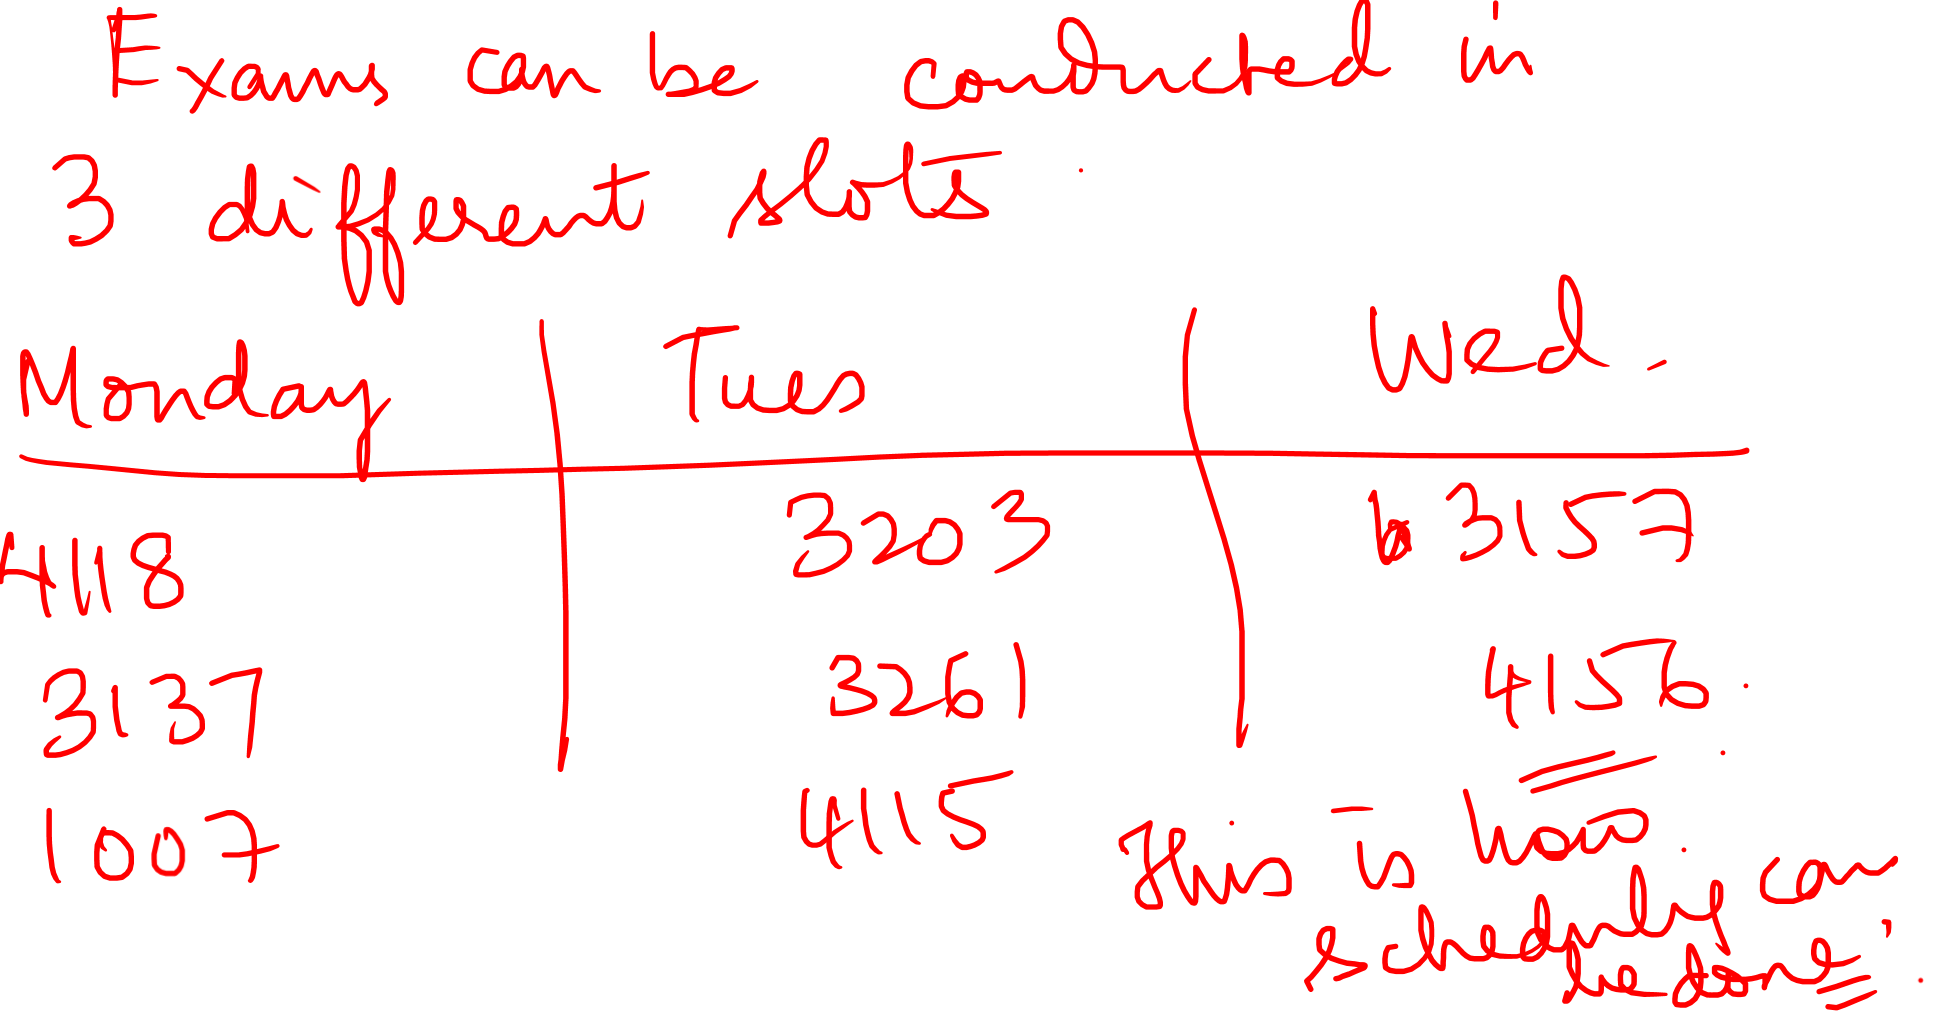 Exams can be conducted in
3 different slots.
Monday Tues Wed.
4118 3203 3157
3137 3261 4156.
1007 4115 This is how
scheduling can
be done.